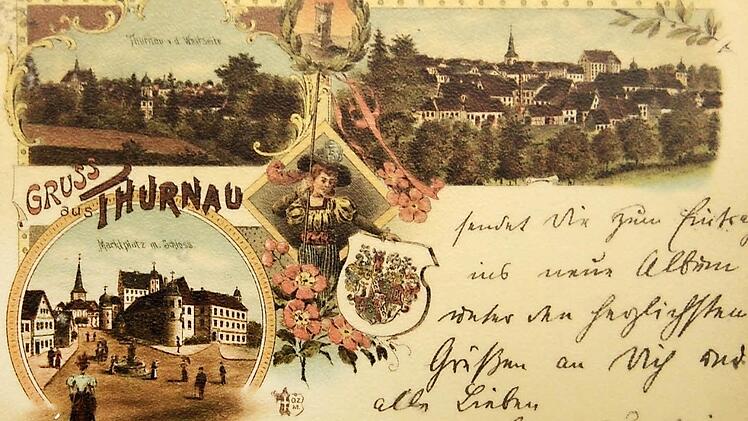 Thurnau v. d. Westseite
GRUSS
aus THURNAU
Marktplatz m. Schloss.
sendet Dir zum Eintrag
ins neue Album
unter den herzlichsten
Grüßen an Dich und
alle Lieben